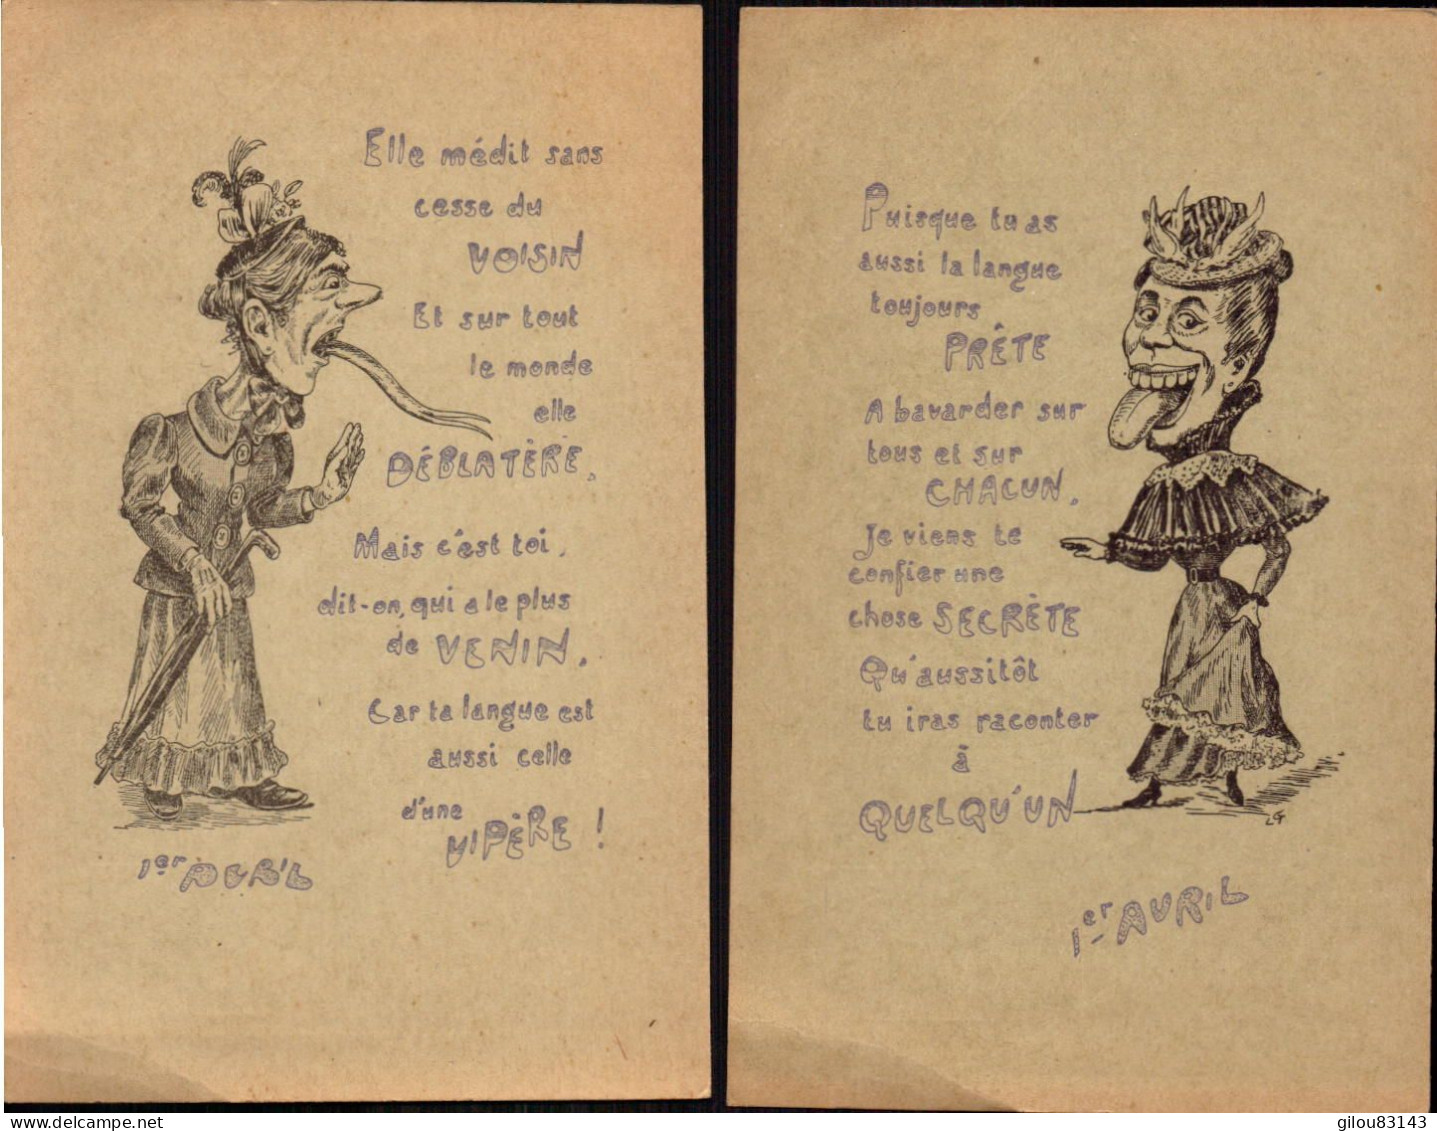 Elle médit sans
cesse du
VOISIN
Et sur tout
le monde
elle
DÉBLATÈRE.
Mais c'est toi,
dit-on, qui a le plus
de VENIN.
Car ta langue est
aussi celle
d'une
VIPÈRE !
1er AVRIL
Puisque tu as
aussi la langue
toujours
PRÊTE
A bavarder sur
tous et sur
CHACUN.
Je viens te
confier une
chose SECRÈTE
Qu'aussitôt
tu iras raconter
à
QUELQU'UN
LG
1er AVRIL
delcampe.net
gilou83143